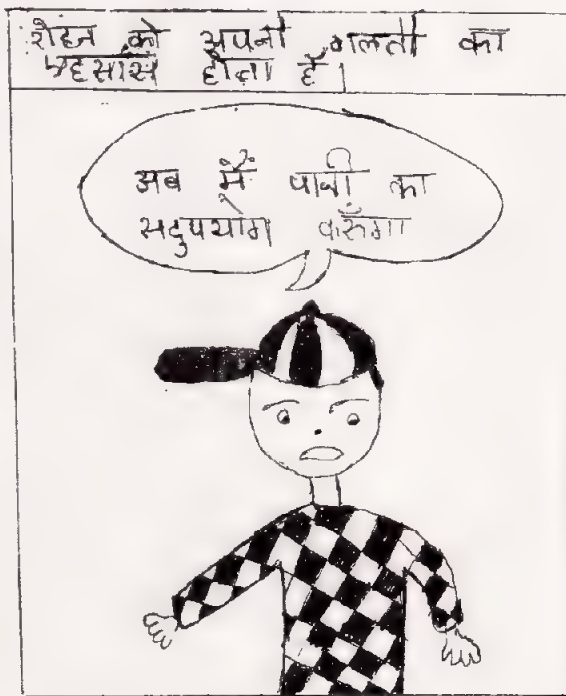 को अपनी गलती का
एहसास होता है।
अब मैं पानी का
सदुपयोग करुँगा